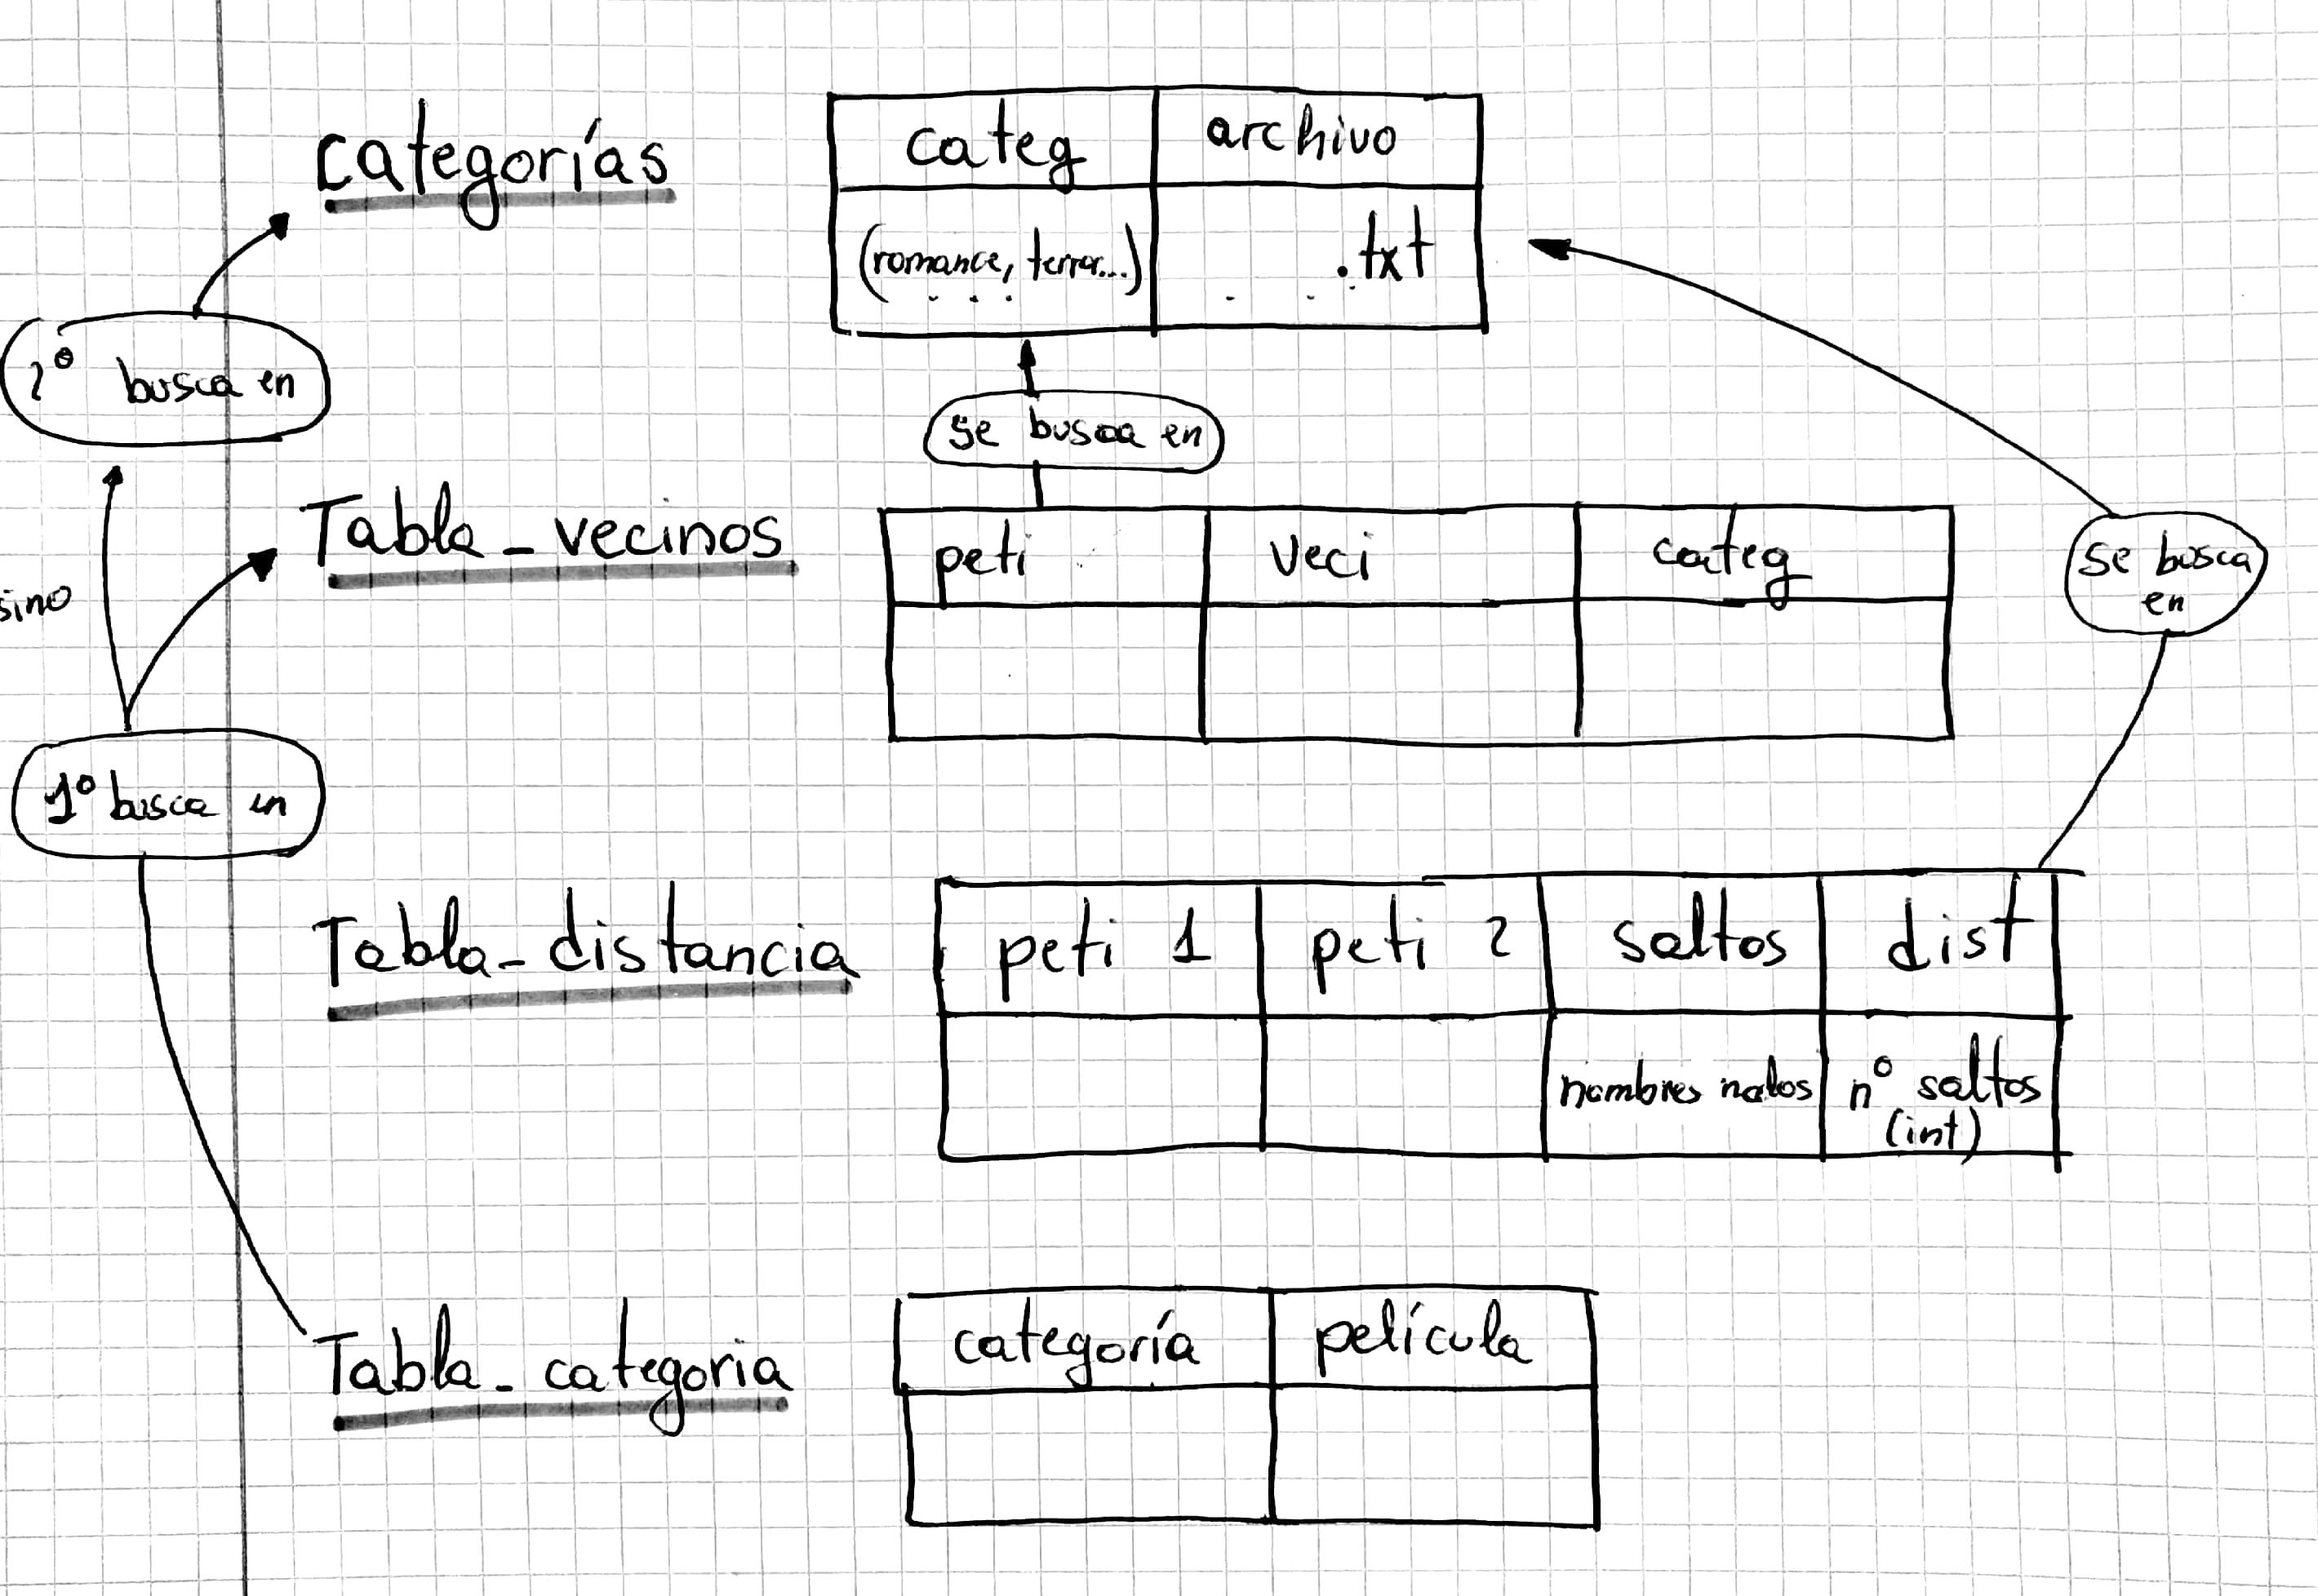 categorías
categ
archivo
(romance, terror...)
.txt
2º busca en
se busca en
Tabla_vecinos
peti
veci
categ
se busca
en
sino
1º busca en
Tabla_distancia
peti 1
peti 2
saltos
dist
nombres
nº saltos
(int)
Tabla_categoria
categoría
película